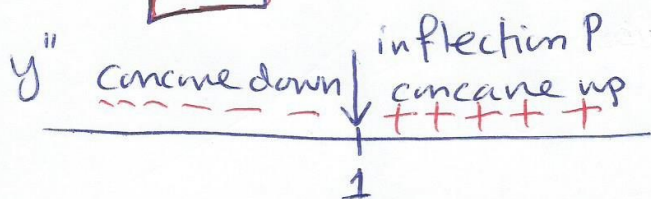 inflection P
y" concave down concave up
- - - - - - + + + + +
1